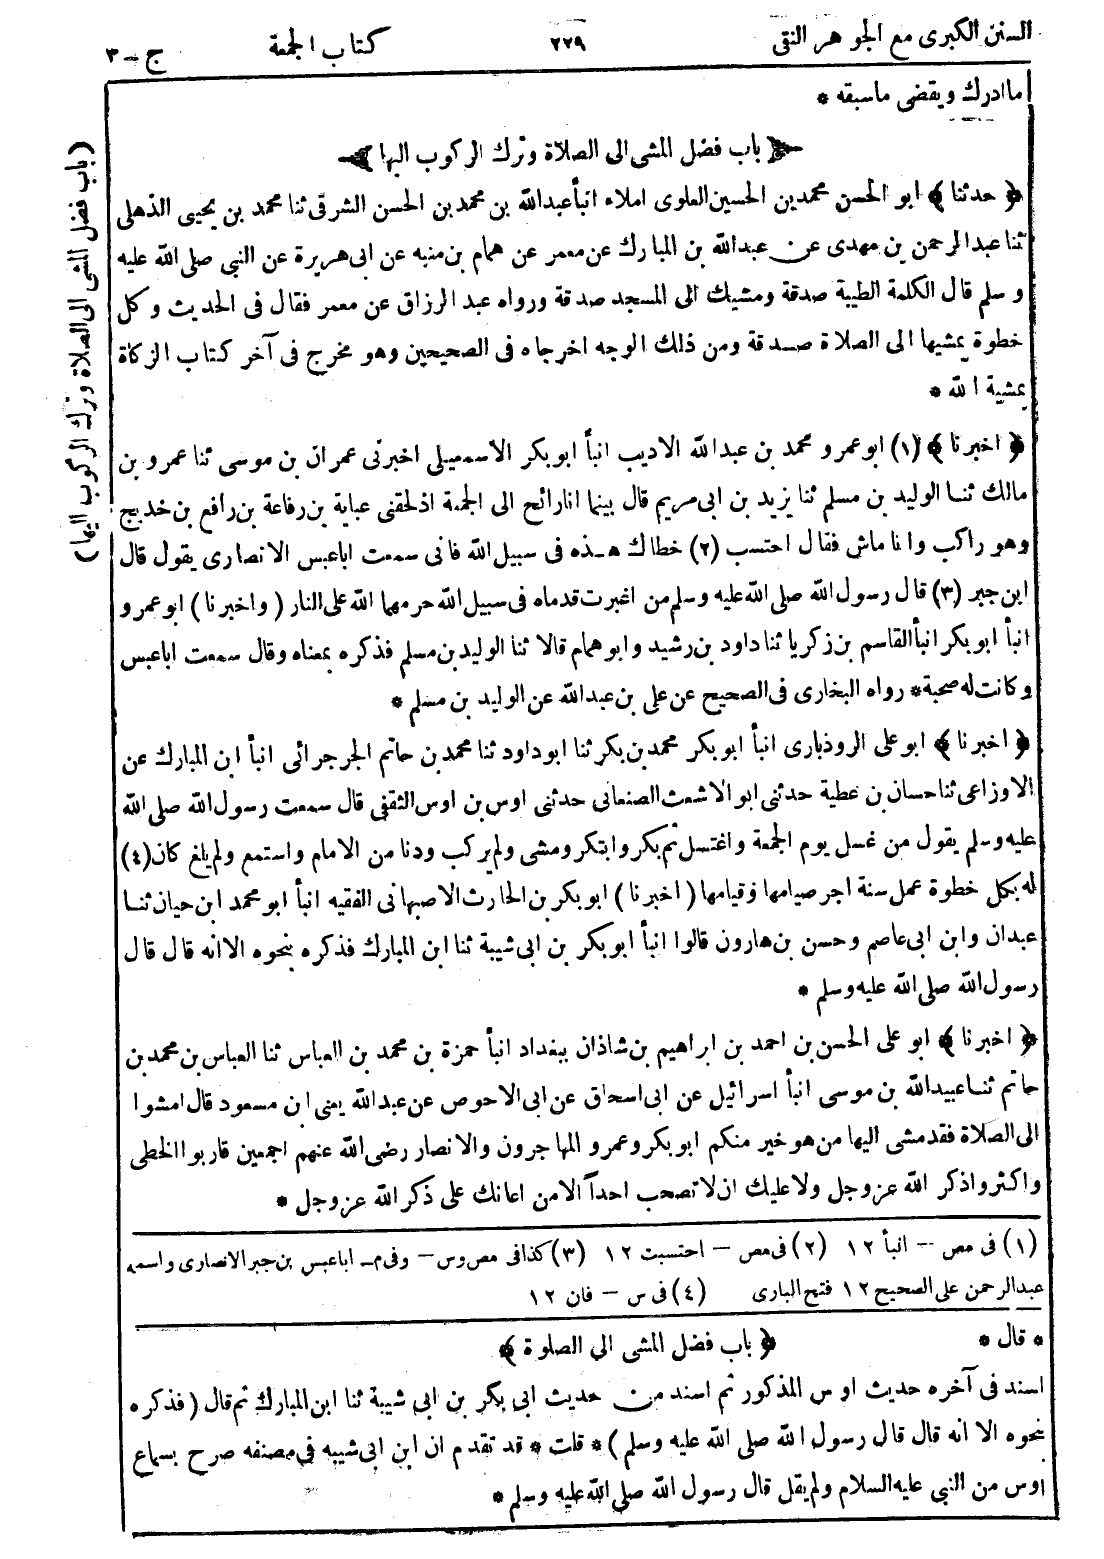 السنن الكبرى مع الجوهر النقى ٢٢٩ كتاب الجمعة ج-٣
ما ادرك ويقضى ماسبقه *
﴿ باب فضل المشى الى الصلاة وترك الركوب اليها ﴾
(باب فضل المشى الى الصلاة وترك الركوب اليها)
﴿ حدثنا ﴾ ابو الحسن محمد بن الحسين العلوى املاء انبأ عبدالله بن محمد بن الحسن الشرقى ثنا محمد بن يحيى الذهلى
ثنا عبدالرحمن بن مهدى عن عبدالله بن المبارك عن معمر عن همام بن منبه عن ابى هريرة عن النبى صلى الله عليه
وسلم قال الكلمة الطيبة صدقة ومشيك الى المسجد صدقة ورواه عبد الرزاق عن معمر فقال فى الحديث وكل
خطوة يمشيها الى الصلاة صدقة ومن ذلك الوجه اخرجاه فى الصحيحين وهو مخرج فى آخر كتاب الزكاة
بمشية الله *
﴿ اخبرنا ﴾ (١) ابو عمرو محمد بن عبدالله الاديب انبأ ابو بكر الاسمعيلى اخبرنى عمران بن موسى ثنا عمرو بن
مالك ثنا الوليد بن مسلم ثنا يزيد بن ابى مريم قال بينما انا رائح الى الجمعة اذ لحقنى عباية بن رفاعة بن رافع بن خديج
وهو راكب وانا ماش فقال احتسب (٢) خطاك هذه فى سبيل الله فانى سمعت اباعبس الانصارى يقول قال
ابن جبر (٣) قال رسول الله صلى الله عليه وسلم من اغبرت قدماه فى سبيل الله حرمهما الله على النار (واخبرنا) ابو عمرو
انبأ ابو بكر انبأ القاسم بن زكريا ثنا داود بن رشيد وابو همام قالا ثنا الوليد بن مسلم فذكره بمعناه وقال سمعت اباعبس
وكانت له صحبة * رواه البخارى فى الصحيح عن على بن عبدالله عن الوليد بن مسلم *
﴿ اخبرنا ﴾ ابو على الروذبارى انبأ ابو بكر محمد بن بكر ثنا ابو داود ثنا محمد بن حاتم الجرجرائى انبأ ابن المبارك عن
الاوزاعى ثنا حسان بن عطية حدثنى ابو الاشعث الصنعانى حدثنى اوس بن اوس الثقفى قال سمعت رسول الله صلى الله
عليه وسلم يقول من غسل يوم الجمعة واغتسل ثم بكر وابتكر ومشى ولم يركب ودنا من الامام واستمع ولم يلغ كان (٤)
له بكل خطوة عمل سنة اجر صيامها وقيامها (اخبرنا) ابو بكر بن الحارث الاصبهانى الفقيه انبأ ابو محمد ابن حيان ثنا
عبدان وابن ابى عاصم وحسن بن هارون قالوا انبأ ابو بكر بن ابى شيبة ثنا ابن المبارك فذكره بنحوه الا انه قال قال
رسول الله صلى الله عليه وسلم *
﴿ اخبرنا ﴾ ابو على الحسن بن احمد بن ابراهيم بن شاذان ببغداد انبأ حمزة بن محمد بن العباس ثنا العباس بن محمد بن
حاتم ثنا عبيدالله بن موسى انبأ اسرائيل عن ابى اسحاق عن ابى الاحوص عن عبدالله يعنى ابن مسعود قال امشوا
الى الصلاة فقد مشى اليها من هو خير منكم ابو بكر وعمر و المهاجرون والانصار رضى الله عنهم اجمعين قاربوا الخطى
واكثروا ذكر الله عز وجل ولا عليك ان لا تصحب احداً الا من اعانك على ذكر الله عز وجل *
(١) فى مص - انبأ ١٢ (٢) فى مص - احتسبت ١٢ (٣) كذا فى مص وس - وفى م- اباعبس بن جبر الانصارى واسمه
عبدالرحمن على الصحيح ١٢ فتح البارى (٤) فى س - فان ١٢
* قال * ﴿ باب فضل المشى الى الصلوة ﴾
اسند فى آخره حديث اوس المذكور ثم اسند من حديث ابى بكر بن ابى شيبة ثنا ابن المبارك ثم قال (فذكره
بنحوه الا انه قال قال رسول الله صلى الله عليه وسلم) * قلت * قد تقدم ان ابن ابى شيبه فى مصنفه صرح بسماع
اوس من النبى عليه السلام ولم يقل قال رسول الله صلى الله عليه وسلم *